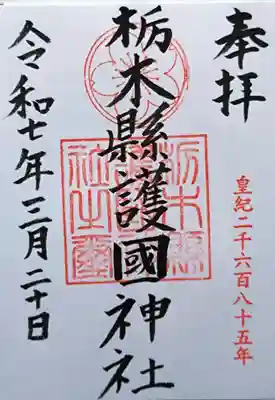 奉拝
皇紀二千六百八十五年
栃木縣護國神社
令和七年三月二十日